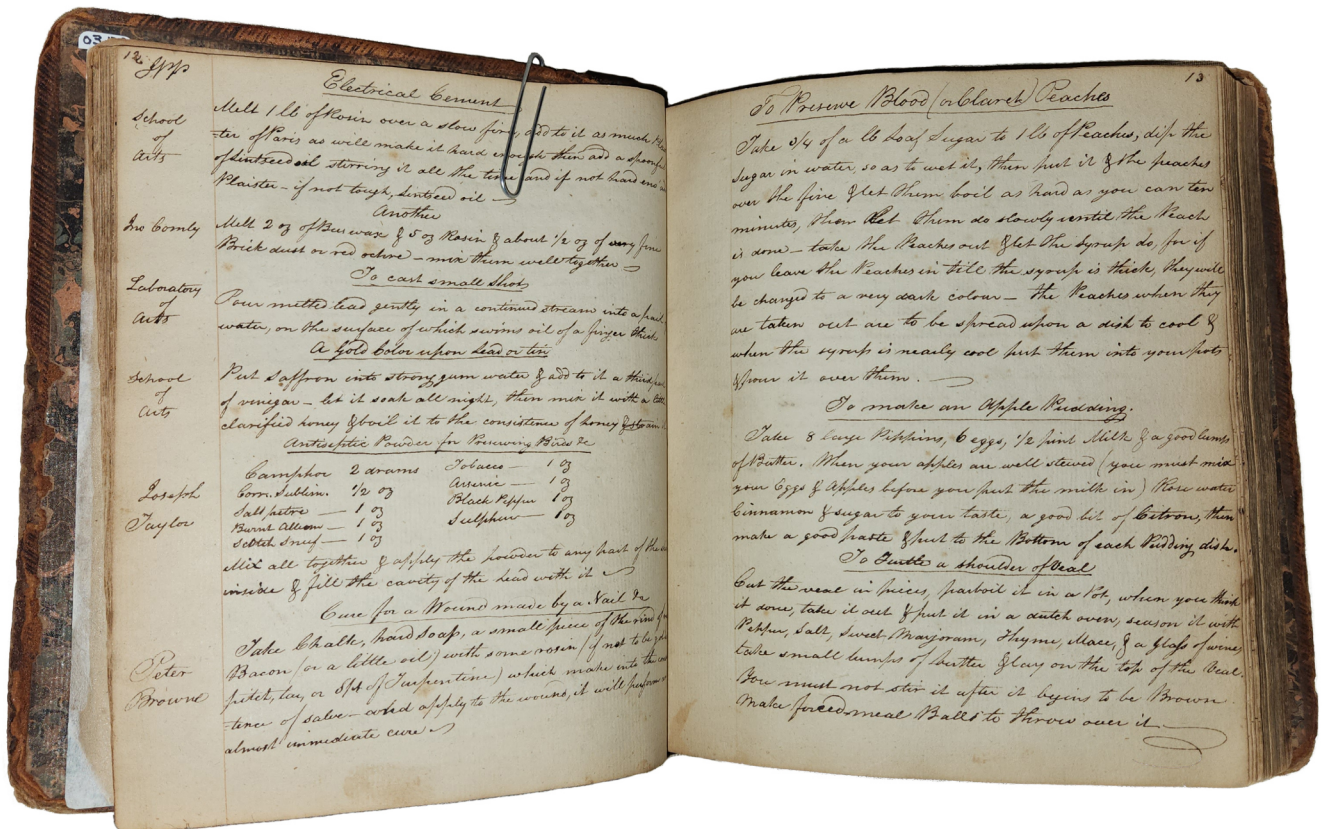 12
Electrical Cement
School
of
Arts
Melt 1 lb of Rosin over a slow fire, add to it as much
-ter of Paris as will make it hard enough then add a spoonful
of Lintseed oil stirring it all the time and if not hard
Plaister - if not tough, Lintseed oil
Another
Jno Comly
Melt 2 oz of Bees wax & 5 oz Rosin & about 1/2 oz of very fine
Brick dust or red ochre - mix them well together
To cast small Shot
Laboratory
of
Arts
Pour melted lead gently in a continued stream into a pail
water, on the surface of which swims oil of a finger thick
A Gold Color upon Lead or tin
School
of
Arts
Put Saffron into strong gum water & add to it a third
of vinegar - let it soak all night, then mix it with a
clarified honey & boil it to the consistence of honey & strain
Antiseptic Powder for Preserving Birds &c
Joseph
Taylor
Camphor 2 drams Tobacco — 1 oz
Corro. Sublim. 1/2 oz Arsenic — 1 oz
Salt petre — 1 oz Black Pepper 1 oz
Burnt Allum — 1 oz Sulphur — 1 oz
Scotch Snuf — 1 oz
Mix all together & apply the powder to any part of the
inside & fill the cavity of the head with it
Cure for a Wound made by a Nail &c
Peter
Browne
Take Chalk, hard Soap, a small piece of the rind of
Bacon (or a little oil) with some rosin (if not to be
pitch, tar, or Spt of Turpentine) which make into the
-tence of salve and apply to the wound, it will
almost immediate cure
13
To Preserve Blood (or Claret) Peaches
Take 3/4 of a lb Loaf Sugar to 1 lb of Peaches, dip the
sugar in water, so as to wet it, then put it & the peaches
over the fire & let them boil as hard as you can ten
minutes, then let them do slowly until the Peach
is done - take the Peaches out & let the Syrup do, for if
you leave the Peaches in till the syrup is thick, they will
be changed to a very dark colour - the Peaches when they
are taken out are to be spread upon a dish to cool &
when the syrup is nearly cool put them into your pots
& pour it over them.
To make an Apple Pudding.
Take 8 large Pippins, 6 eggs, 1/2 pint Milk & a good lump
of Butter. When your apples are well stewed (you must mix
your Eggs & Apples before you put the milk in) Rose water
Cinnamon & sugar to your taste, a good bit of Citron, then
make a good paste & put to the Bottom of each Pudding dish.
To Turtle a shoulder of Veal
Cut the veal in pieces, parboil it in a Pot, when you think
it done, take it out & put it in a dutch oven, season it with
Pepper, Salt, Sweet Marjoram, Thyme, Mace, & a Glass of wine,
take small lumps of butter & lay on the top of the Veal.
You must not stir it after it begins to be Brown.
Make forced meal Balls to throw over it